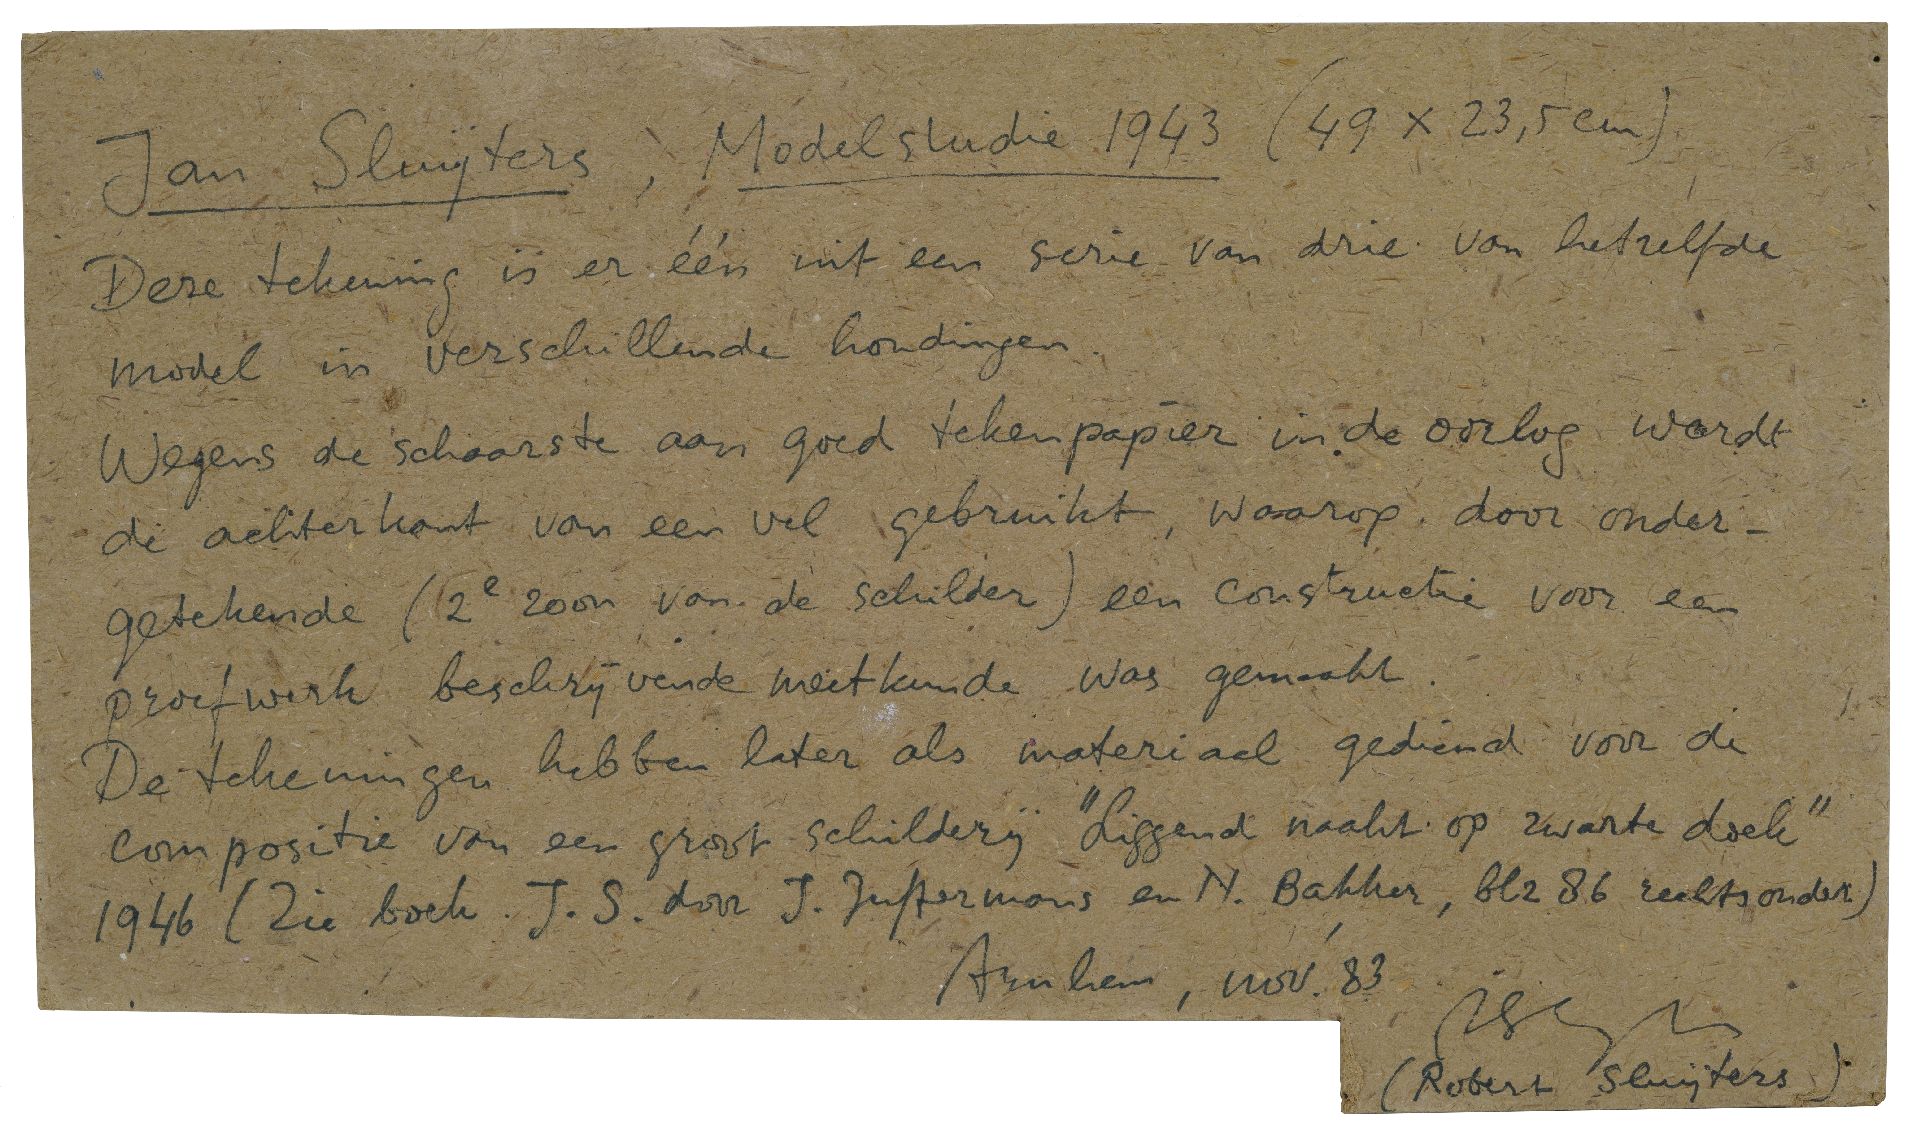 Jan Sluijters, Modelstudie 1943 (49 x 23,5 cm)
Deze tekening is er één uit een serie van drie van hetzelfde
model in verschillende houdingen.
Wegens de schaarste aan goed tekenpapier in de oorlog werdt
de achterkant van een vel gebruikt, waarop door onder-
getekende (2e zoon van de schilder) een constructie voor een
proefwerk beschrijvende meetkunde was gemaakt.
De tekeningen hebben later als materiaal gediend voor de
compositie van een groot schilderij "Liggend naakt op zwarte doek"
1946 (Zie boek J. S. door J. Juffermans en N. Bakker, blz 86 rechtsonder)
Arnhem, nov. '83
(Robert Sluijters)